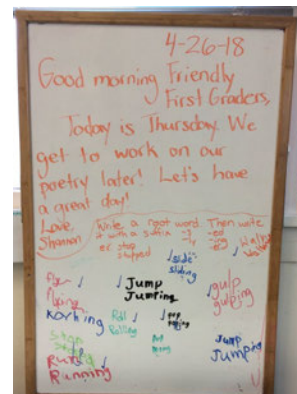 4-26-18
Good morning Friendly
First Graders,
Today is Thursday. We
get to work on our
poetry later! Let's have
a great day!
Love,
Shannon
Write a root word. Then write
it with a suffix -s -ed
-ly -ing
-er
stop
stopped
slide
sliding
flying
Jump
Jumping
gulp
gulping
working
Roll
Rolling
pop
popping
stop
Run
Running
Jump
Jumping